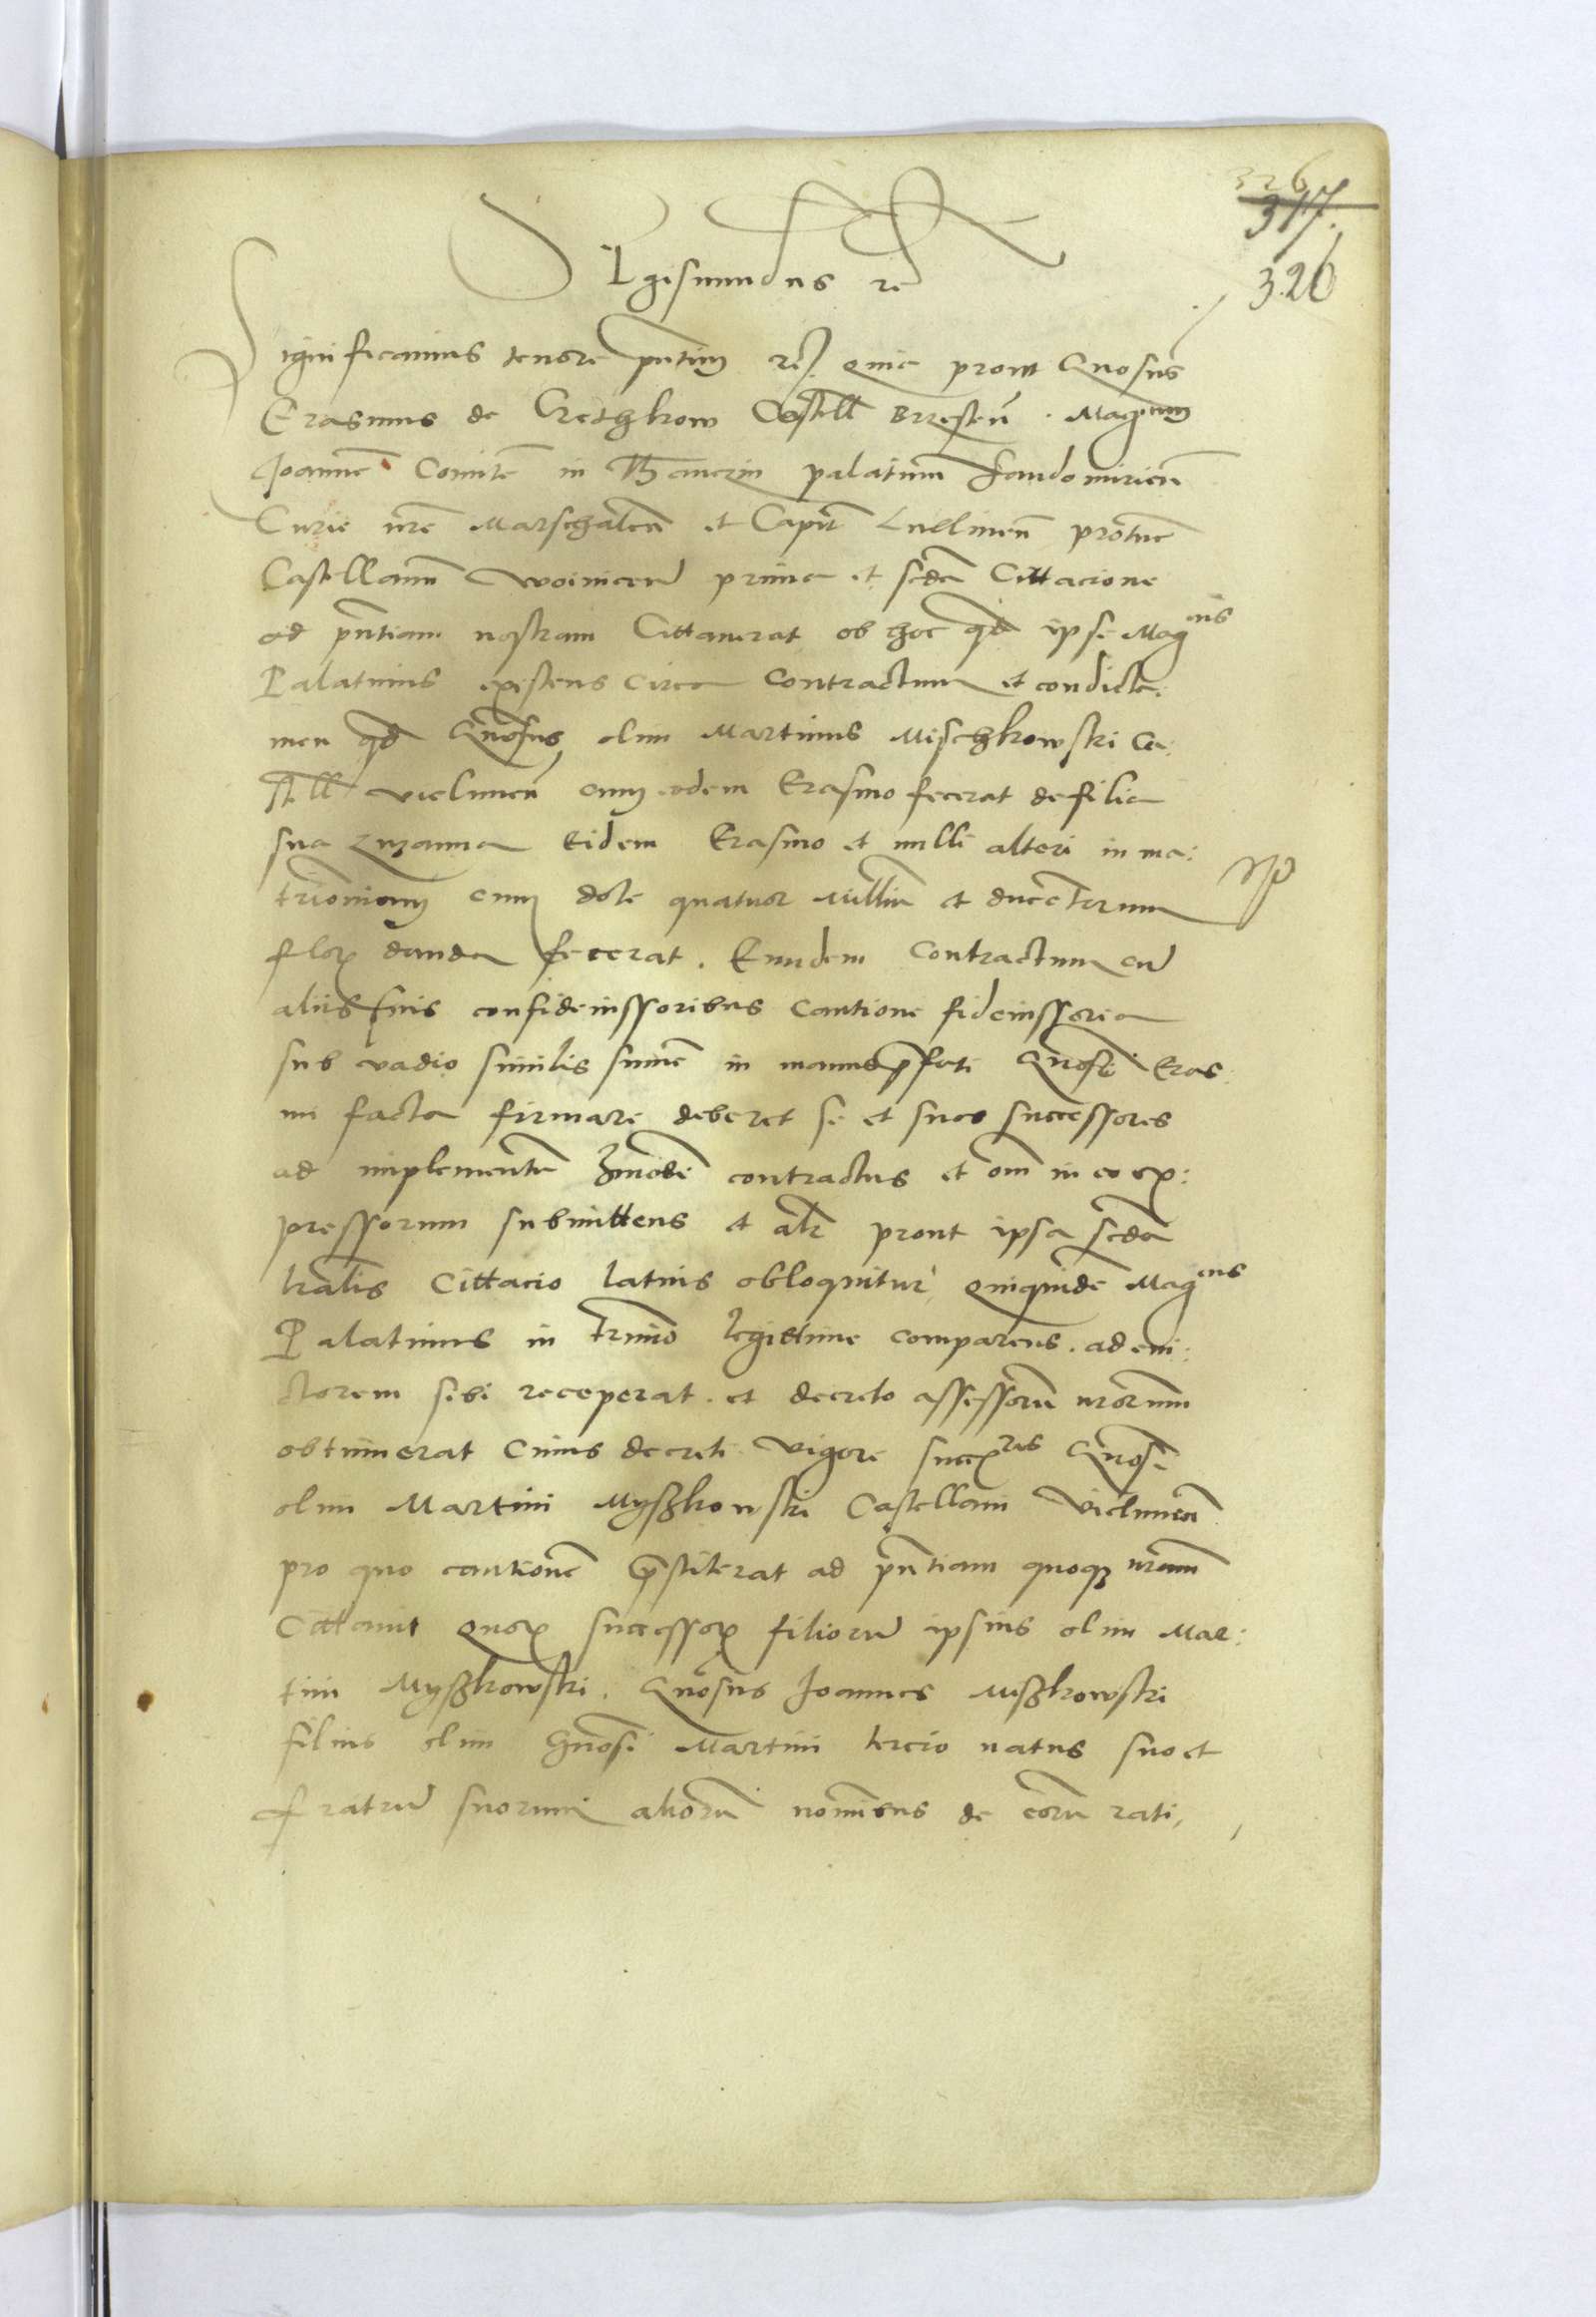 326
317.
326
Sigismundus rc
Significamus tenore pntium rc. quia prout Gnosus
Erasmus de Crethkow Castell Bresten. Magcum
Joannem Comite in Tharnow palatinum Sandomirien
Curie nre Marschalcum et Capit Lublinen protunc
Castellanum Woinicen prima et scda Cittacione
ad pntiam nostram Cittauerat ob hoc qd ipse Mag cus
Palatinus existens circa contractum et condicta:
men qd Gnosus olim Martinus Mischkowski Ca:
stell vielunen cum eodem Erasmo fecerat de filia
sua Zuzanna Eidem Erasmo et nulli alteri in ma:
trimonium cum dote quatuor Millium et ducentorum
flor danda fecerat. Eundem contractum cu
aliis suis confideiussoribus cautione fideiussorea
sub vadio similis summe in manus pfati Gnosi Eras:
mi facta firmare deberet se et suos successores
ad implementum hmodi contractus et omnium in eo ex:
pressorum submittens et alr prout ipsa scda
lralis Cittacio latius obloquitur quiquide Mag cus
Palatinus in termino legittime comparens. ad eui:
ctorem sibi receperat. et decreto assessorum nrorum
obtinuerat Cuius decreti vigore succ res Gnosi
olim Martini Myszkowski Castellani Vielunen
pro quo cautionem prestiterat ad pntiam quoque nram
Cittauit quor successor filioru ipsius olim Mar:
tini Myszkowski. Gnosus Joannes Miszkowski
filius olim Gnosi Martini tercio natus suo et
fratru suorum aliorum nominibus de eorum rati,